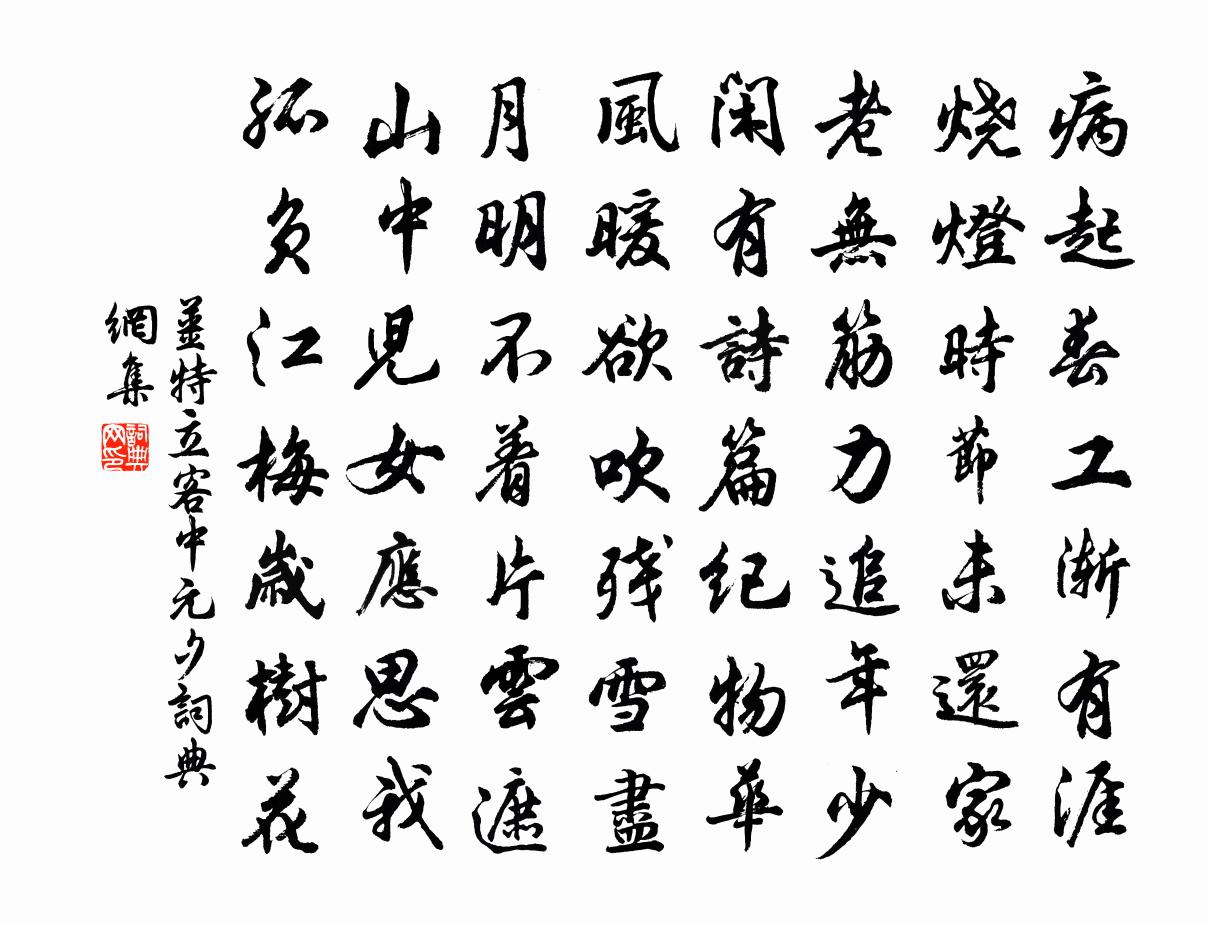 病起春工漸有涯
燒燈時節未還家
老無筋力追年少
閑有詩篇紀物華
風暖欲吹殘雪盡
月明不着片雲遮
山中兒女應思我
孤負江梅歲樹花
姜特立客中元夕詞典
網集
詞典
网印